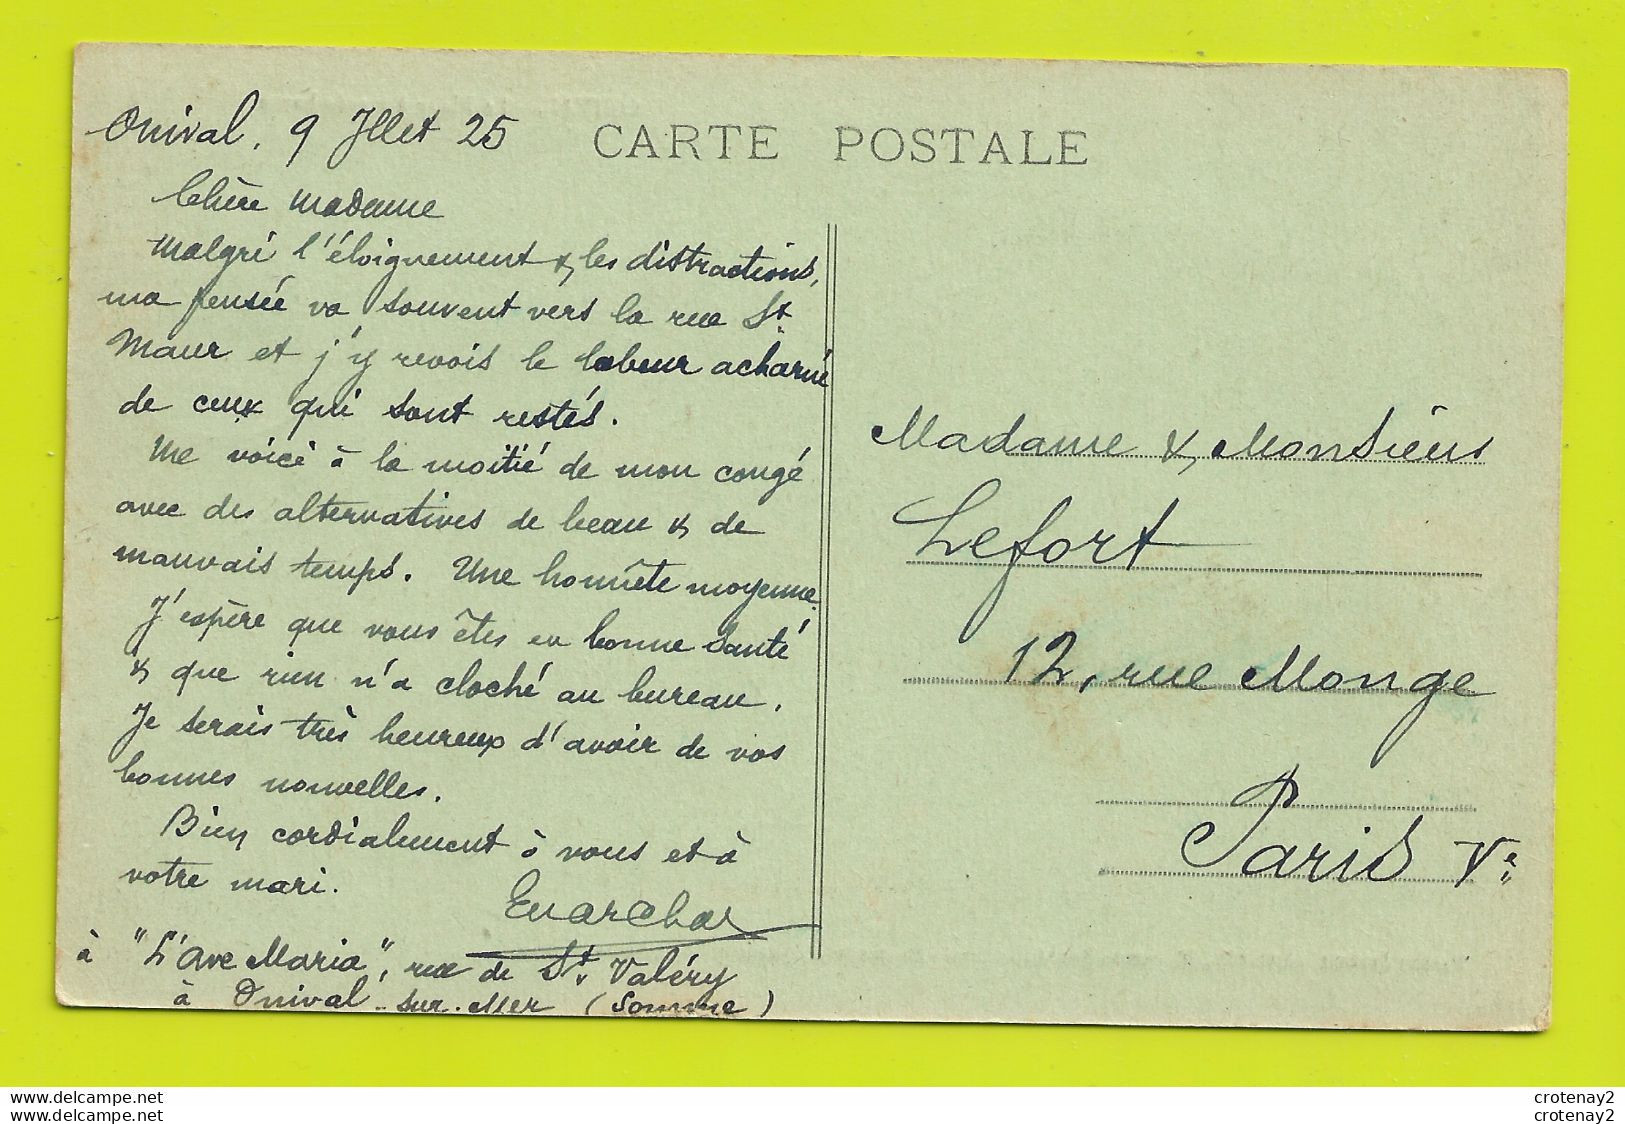 Onival, 9 Jllet 25
CARTE POSTALE
Chère Madame
Malgré l'éloignement & les distractions,
ma pensée va souvent vers la rue St
Maur et j'y revois le labeur acharné
de ceux qui sont restés.
Me voici à la moitié de mon congé
avec des alternatives de beau & de
mauvais temps. Une honnête moyenne.
J'espère que vous êtes en bonne santé
& que rien n'a cloché au bureau.
Je serais très heureux d'avoir de vos
bonnes nouvelles.
Bien cordialement à vous et à
votre mari.
à "L'Ave Maria", rue de St Valéry
à Onival-sur-Mer (Somme)
Madame & Monsieur
Lefort
12, rue Monge
Paris Ve
crotenay2
crotenay2